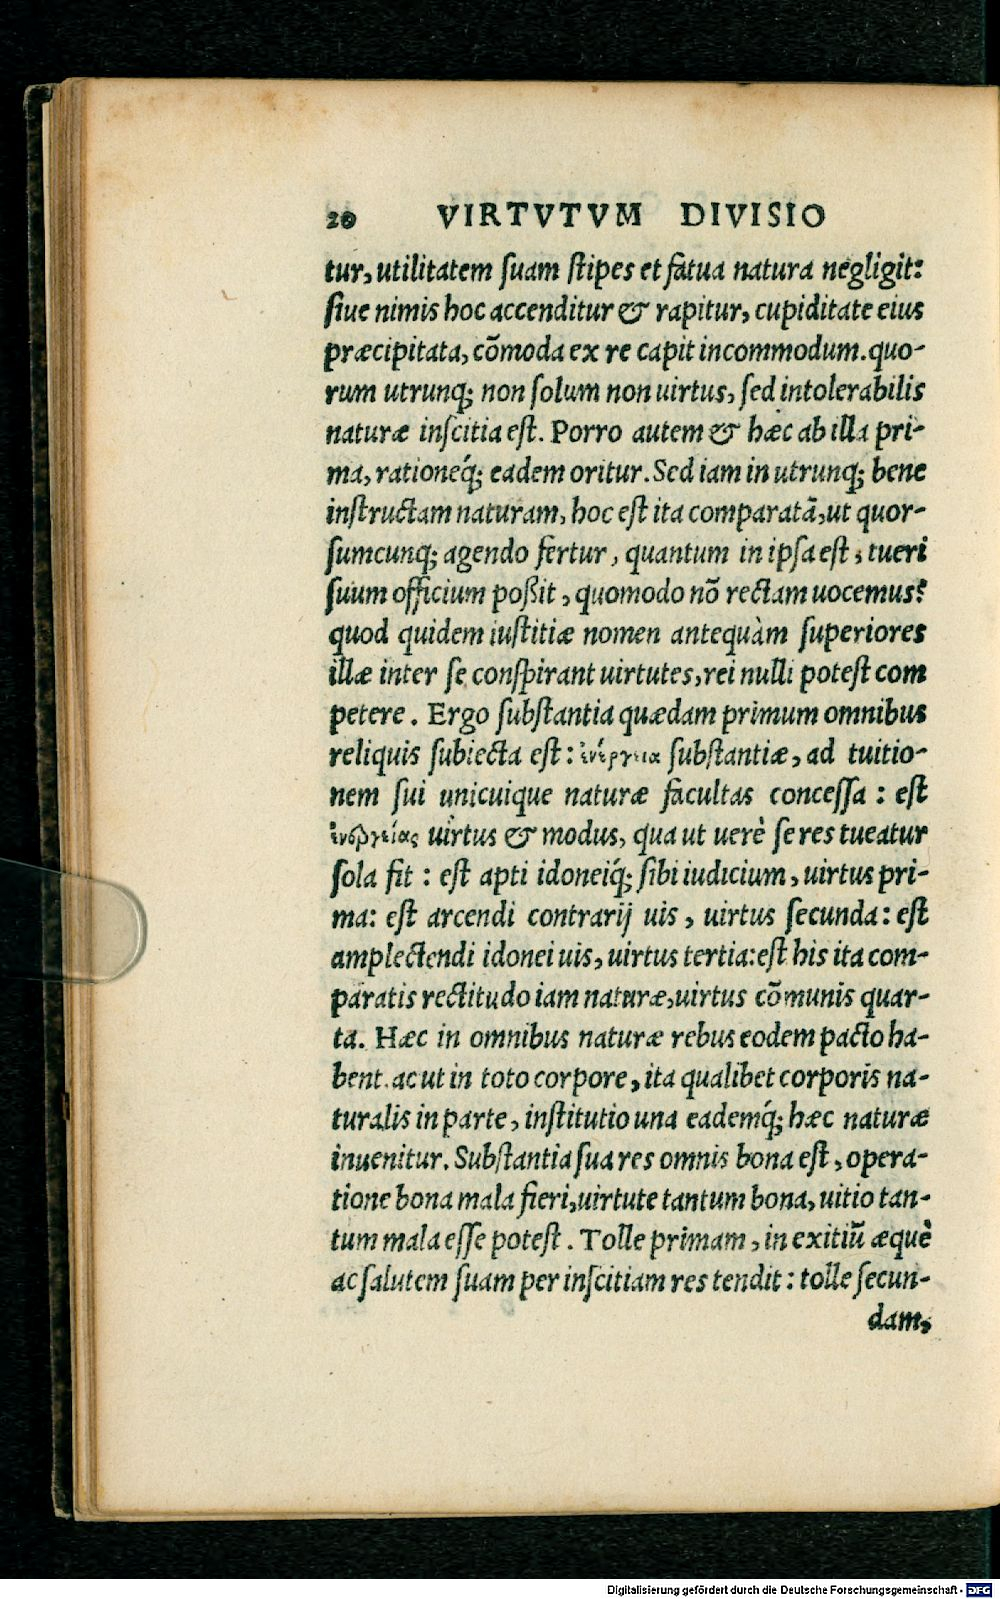 20 VIRTVTVM DIVISIO
tur, utilitatem ſuam ſtipes et fatua natura negligit:
ſiue nimis hoc accenditur & rapitur, cupiditate eius
præcipitata, cõmoda ex re capit incommodum. quo-
rum utrunq; non ſolum non uirtus, ſed intolerabilis
naturæ inſcitia eſt. Porro autem & hæc ab illa pri-
ma, rationeq́; eadem oritur. Sed iam in utrunq; bene
inſtructam naturam, hoc eſt ita comparatã, ut quor-
ſumcunq; agendo fertur, quantum in ipſa eſt, tueri
ſuum officium poßit, quomodo nõ rectam uocemus?
quod quidem iuſtitiæ nomen antequàm ſuperiores
illæ inter ſe conſpirant uirtutes, rei nulli poteſt com
petere. Ergo ſubſtantia quædam primum omnibus
reliquis ſubiecta eſt: ἐνέργεια ſubſtantiæ, ad tuitio-
nem ſui unicuique naturæ facultas conceſſa: eſt
ἐνεργείας uirtus & modus, qua ut uerè ſe res tueatur
ſola fit: eſt apti idoneiq́; ſibi iudicium, uirtus pri-
ma: eſt arcendi contrarij uis, uirtus ſecunda: eſt
amplectendi idonei uis, uirtus tertia: eſt his ita com-
paratis rectitudo iam naturæ, uirtus cõmunis quar-
ta. Hæc in omnibus naturæ rebus eodem pacto ha-
bent. ac ut in toto corpore, ita qualibet corporis na-
turalis in parte, inſtitutio una eademq́; hæc naturæ
inuenitur. Subſtantia ſua res omnis bona eſt, opera-
tione bona mala fieri, uirtute tantum bona, uitio tan-
tum mala eſſe poteſt. Tolle primam, in exitiũ æquè
ac ſalutem ſuam per inſcitiam res tendit: tolle ſecun-
dam,
Digitalisierung gefördert durch die Deutsche Forschungsgemeinschaft - DFG